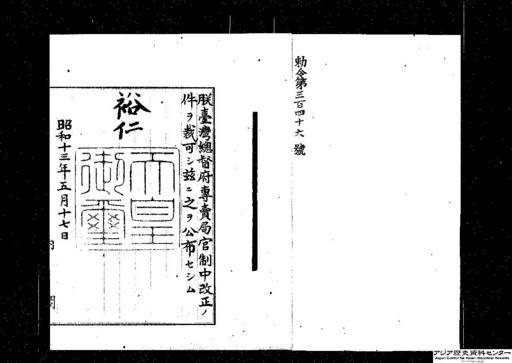 勅令第三百四十六號
朕臺灣總督府專賣局官制中改正ノ
件ヲ裁可シ茲ニ之ヲ公布セシム
裕仁
天皇
御璽
昭和十三年五月十七日
内閣
アジア歴史資料センター
Japan Center for Asian Historical Records